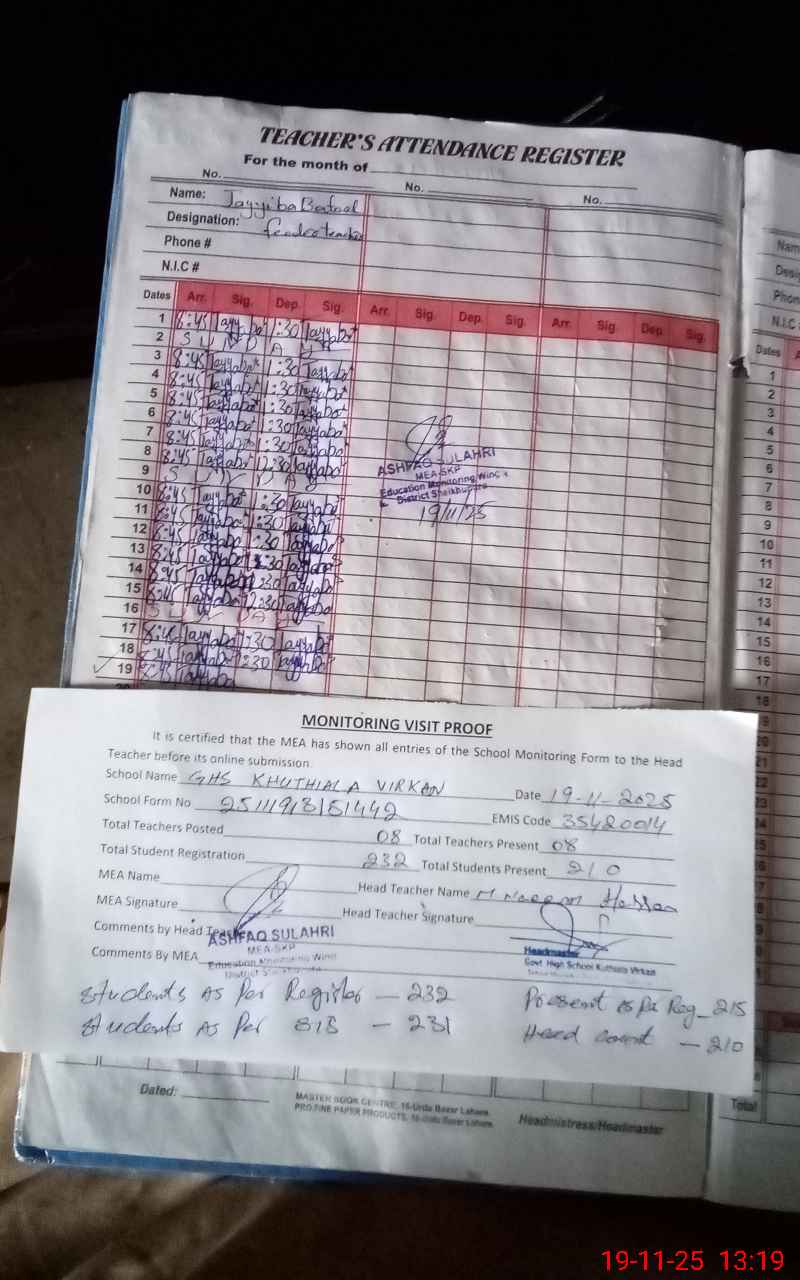 TEACHER'S ATTENDANCE REGISTER
For the month of
No. No. No.
Name: Tayyiba Batool
Designation: teacher
Phone #
N.I.C #
Dates Arr. Sig. Dep. Sig. Arr. Sig. Dep. Sig. Arr. Sig. Dep. Sig.
1 8:45 Tayyaba 1:30 Tayyaba
2 S U N D A Y
3 8:45 Tayyaba 1:30 Tayyaba
4 8:45 Tayyaba 1:30 Tayyaba
5 8:45 Tayyaba 1:30 Tayyaba
6 8:45 Tayyaba 1:30 Tayyaba
7 8:45 Tayyaba 1:30 Tayyaba
8 8:45 Tayyaba 12:30 Tayyaba
9 S U N D A Y
10 8:45 Tayyaba 1:30 Tayyaba
11 8:45 Tayyaba 1:30 Tayyaba
12 8:45 Tayyaba 1:30 Tayyaba
13 8:45 Tayyaba 1:30 Tayyaba
14 8:45 Tayyaba 12:30 Tayyaba
15 8:45 Tayyaba 12:30 Tayyaba
16 SUNDAY
17 8:45 Tayyaba 1:30 Tayyaba
18 8:45 Tayyaba 1:30 Tayyaba
19 8:45 Tayyaba
ASHFAQ SULAHRI
MEA-SKP
Education Monitoring Wing
District Sheikhupura
19/11/25
MONITORING VISIT PROOF
It is certified that the MEA has shown all entries of the School Monitoring Form to the Head
Teacher before its online submission
School Name GHS KHUTHIALA VIRKAN Date 19-11-2025
School Form No EMIS Code 35420014
Total Teachers Posted 08 Total Teachers Present 08
Total Student Registration 232 Total Students Present 210
MEA Name Head Teacher Name M Naeem Hassan
MEA Signature Head Teacher Signature
Comments by Head Teacher
ASHFAQ SULAHRI
MEA-SKP
Education Monitoring Wing
District Sheikhupura
Headmaster
Govt. High School Kuthiala Virkan
Comments By MEA
Students As Per Register - 232 Present as per Reg - 215
Students As Per SIS - 231 Head count - 210
Dated:
MASTER BOOK CENTRE, 16-Urdu Bazar Lahore.
PRO.FINE PAPER PRODUCTS, 16-Urdu Bazar Lahore.
Headmistress/Headmaster
Dates
1
2
3
4
5
6
7
8
9
10
11
12
13
14
15
16
17
18
Total
19-11-25 13:19